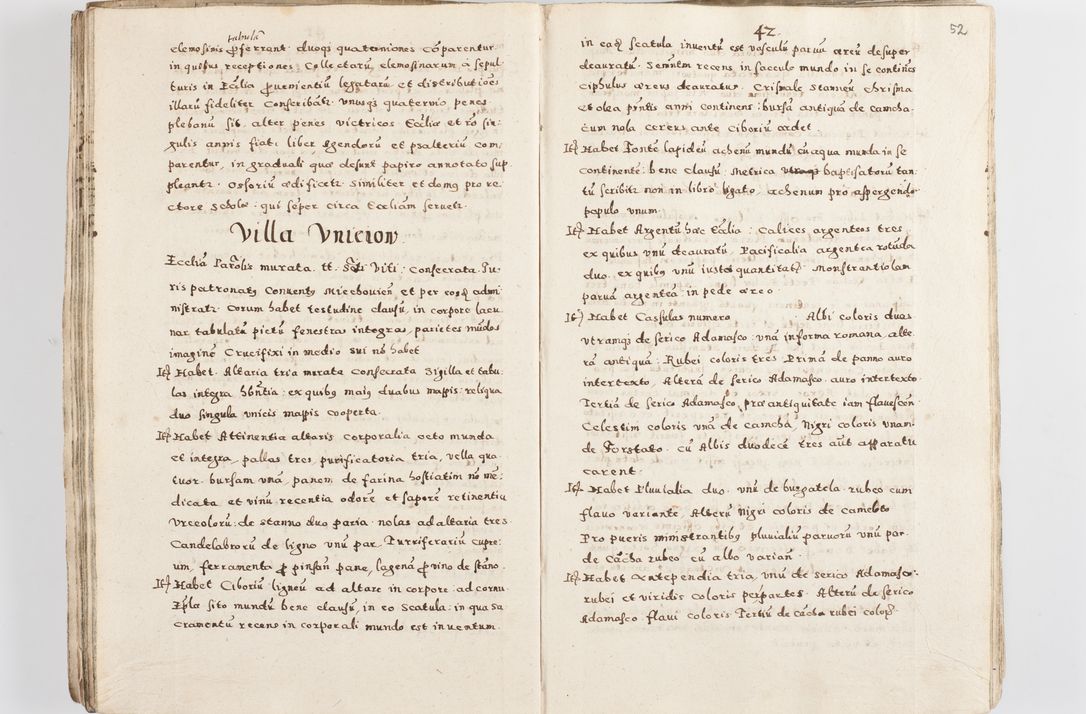 tabula
elemosinis proferrant. duoqs quaterniones coparentur
in quibus receptiones Collectaru, elemosinarum a sepul
turis in Ecclia prouenientiu legataru et distributioes
illaru fideliter Conscribatr. Vnusqs quaternio penes
plebanu sit. alter penes victricos Ecclie et ro sin
gulis annis fiat: liber Agendoru et psalteriu com
parentur, in graduali quae desunt papiro annotato sup
pleantr. Ossoriu aedificetr. similiter et domus pro re
ctore scholae. qui seper circa Eccliam seruetr.
Villa Vnicion
Ecclia Parolis murata. tt. Scti Viti: Consecrata. Iu
ris patronatus Conuentus Miechouien et per eosq admi
nistratr. Corum habet testudine clausu, in corpore lacu
nar tabulatu pictu fenestras integras, parietes mudos
imagine Crucifixi in medio sui no habet
It Habet. Altaria tria murata Consecrata Sigilla et tabu
las integra hbntia: ex quibus maius duabus mappis reliqua
duo singula vnicis mappis cooperta.
It Habet Attinentia altaris Corporalia octo munda
et integra, pallas tres, purificatoria tria, vella qua
tuor. bursam vna, panem de farina hostiatim no me
dicata et vinu recentia odore et sapore retinentia
Vrceoloru: de stanno duo paria. nolas ad altaria tres
Candelabroru de ligno vnu par. Turriferariu cupre
um, ferramenta pro pinsan pane, lagena pro vino de stano.
It Habet Ciboriu ligneu ad altare in corpore ad cornu
Epla sito mundu bene clausu, in eo Scatula in qua Sa
cramentu recens in corporali mundo est inuentum.
42
52
in eaq scatula inuentu est vasculu paruu aereu desuper
deauratu. Semntem recens in sacculo mundo in se contines
Ciphulus aereus deauratus. Crismale Stanneu Chrisma
et olea pntis anni continens: bursa antiqua de camcha.
cum nola cereus ante Ciboriu ardet.
It Habet Fonte lapideu achenu mundu cu aqua munda in se
continente: bene clausu: Metrica baptisatoru tan
tu scribitr non in libro ligato, achenum pro aspergendo
populo vnum.
It Habet Argentu haec Ecclia: Calices argenteos tres
ex quibus vnu deauratu, Pacificalia argentea rotuda
duo. ex quibus vnu iustae quantitats Monstrantiolam
parua argentea in pede aereo.
It Habet Cassulas numero Albi coloris duas
vtramqs de serico Adamasco: vna informa romana, alte
ra antiqua: Rubei coloris tres Prima de panno auro
intertexto, Altera de serico Adamasco. auro intertexto.
Tertia de serico Adamasco prae antiquitate iam flauescen
Celestim coloris vna de camcha, Nigri coloris vnam
de Forstato. cu Albis duodece tres aut apparatu
carent.
It Habet Pluuialia duo. vnu de burgatela rubeo cum
flauo variante, Alteru Nigri coloris de cameloto
Pro pueris ministrantibus pluuialiu paruoru vnu par.
de cacha rubeo cu albo varian.
It Habet Antependia tria, vnu de serico Adamasco
rubei et viridis coloris perpartes. Alteru de serico
Adamasco flaui coloris. Tertiu de cacha rubei coloris.